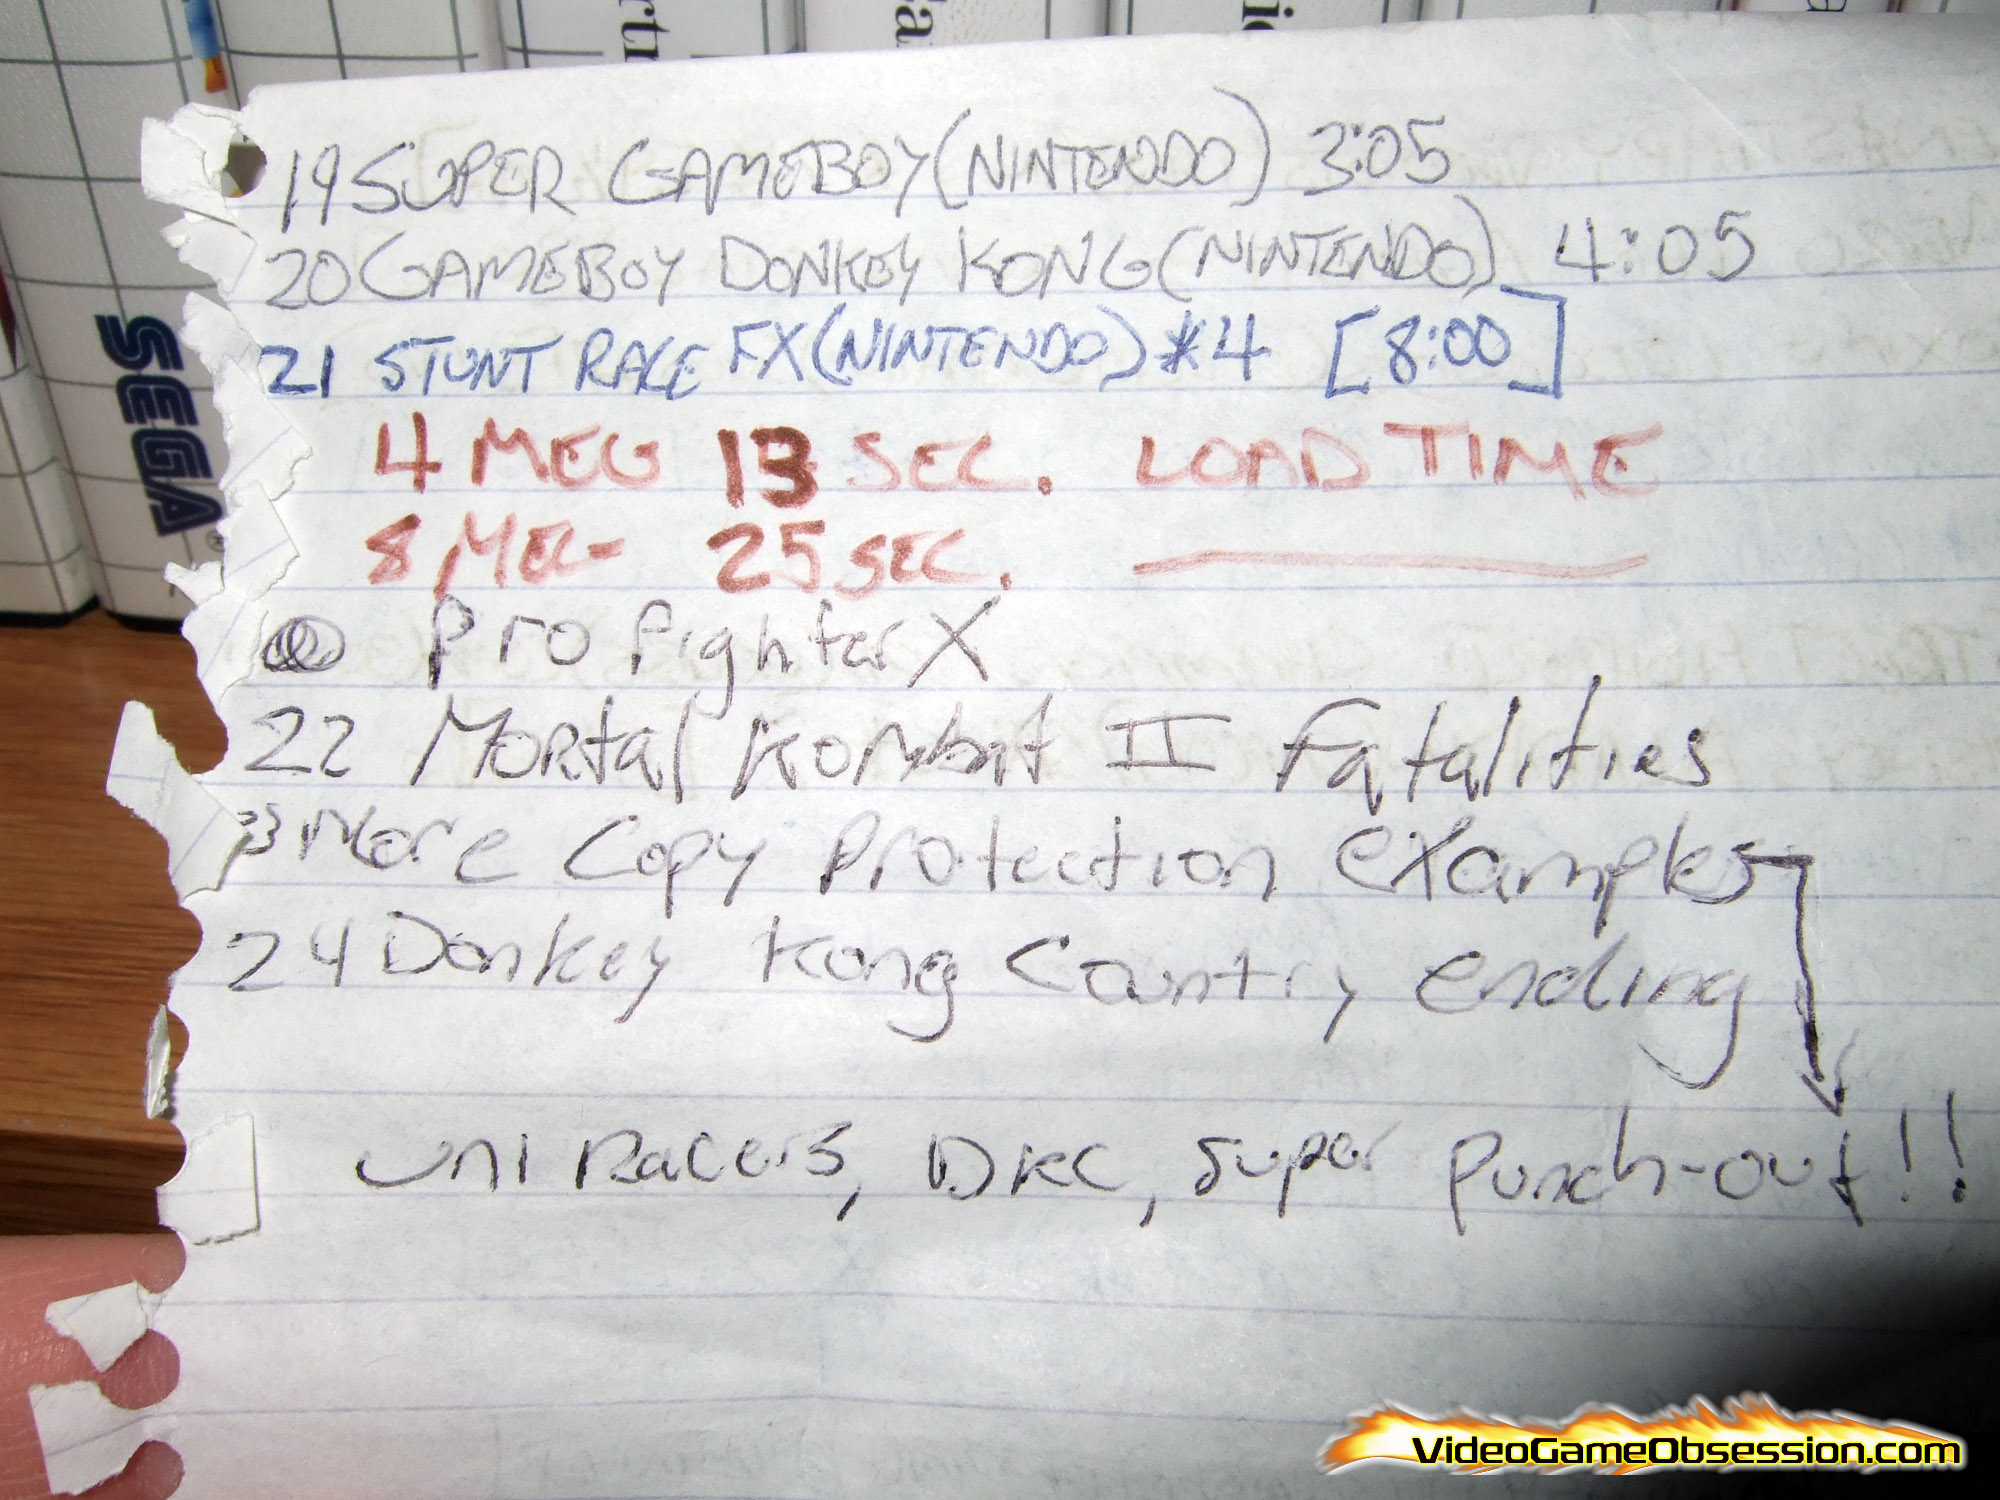 19 SUPER GAMEBOY (NINTENDO) 3:05
20 GAMEBOY DONKEY KONG (NINTENDO) 4:05
21 STUNT RACE FX (NINTENDO) *4 [8:00]
4 MEG 13 SEC. LOAD TIME
8 MEG 25 SEC.
Pro Fighter X
22 Mortal Kombat II Fatalities
23 More Copy Protection examples
24 Donkey Kong Country ending
Uni Racers, DKC, Super Punch-out!!
SEGA®
VideoGameObsession.com